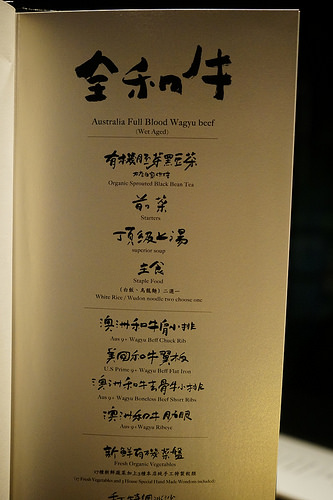 全和牛
Australia Full Blood Wagyu beef
(Wet Aged)
有機胚芽黑豆茶
Organic Sprouted Black Bean Tea
前菜
Starters
頂級上湯
superior soup
主食
Staple Food
(白飯、烏龍麵) 二選一
White Rice / Wudon noodle two choose one
澳洲和牛肩小排
Aus 9+ Wagyu Beff Chuck Rib
美國和牛翼板
U.S Prime 9+ Wagyu Beff Flat Iron
澳洲和牛去骨牛小排
Aus 9+ Wagyu Boneless Beef Short Ribs
澳洲和牛肋眼
Aus 9+Wagyu Ribeye
新鮮有機菜盤
Fresh Organic Vegetables